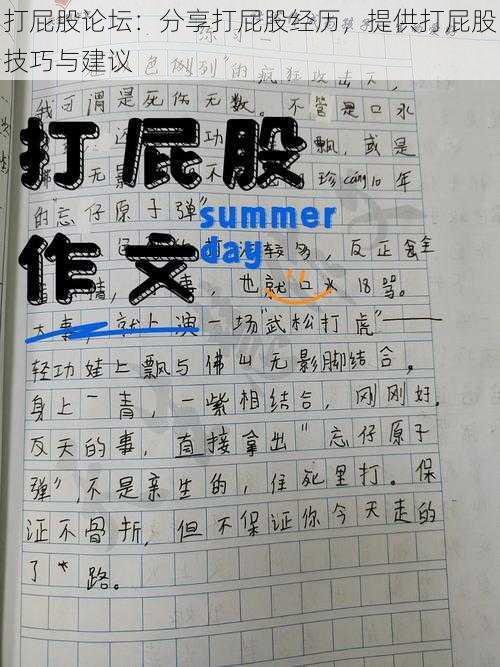 打屁股论坛：分享打屁股经历，提供打屁股
技巧与建议
色倒列"的疯狂攻击下，
我可谓是死伤无数。不管是口水
功 飘，或是
无影 不 珍cáng10年
的"忘仔原子弹"
打屁股
summer
day
作文
较多，反正鸡
情， 事，也就口水18骂。
大事，就上演一场"武松打虎"——
轻功娃上飘与佛山无影脚结合，
身上一青，一紫相结合，刚刚好。
反天的事，直接拿出"忘仔原子
弹"，不是亲生的，往死里打。保
证不骨折，但不保证你今天走的
了 路。